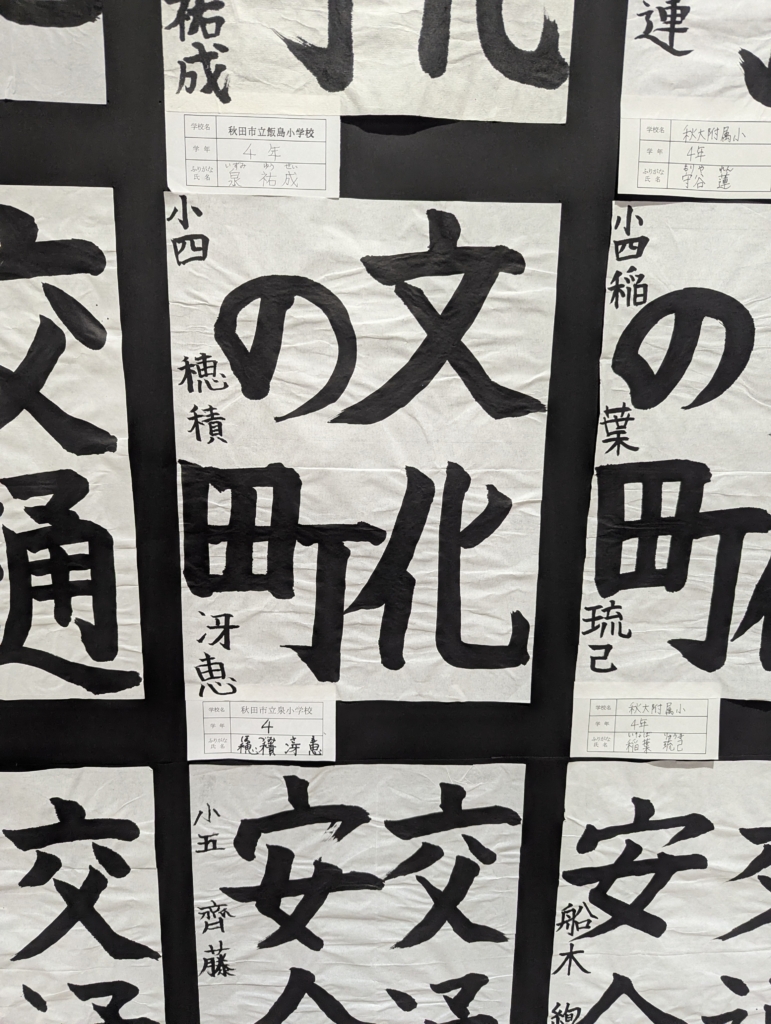 祐成
化
連
学校名 秋田市立飯島小学校
学年 4年
ふりがな いずみ ゆう せい
氏名 泉 祐成
学校名 秋大附属小
学年 4年
ふりがな もりや れん
氏名 守谷 蓮
交通
文化
の町
小四 穂積 冴恵
学校名 秋田市立泉小学校
学年 4
ふりがな
氏名 穂積 冴恵
の町
小四 稲葉 琉己
学校名 秋大附属小
学年 4年
ふりがな いなば
氏名 稲葉 琉己
交通
交通
安全
小五 齊藤
安全
船木 絢